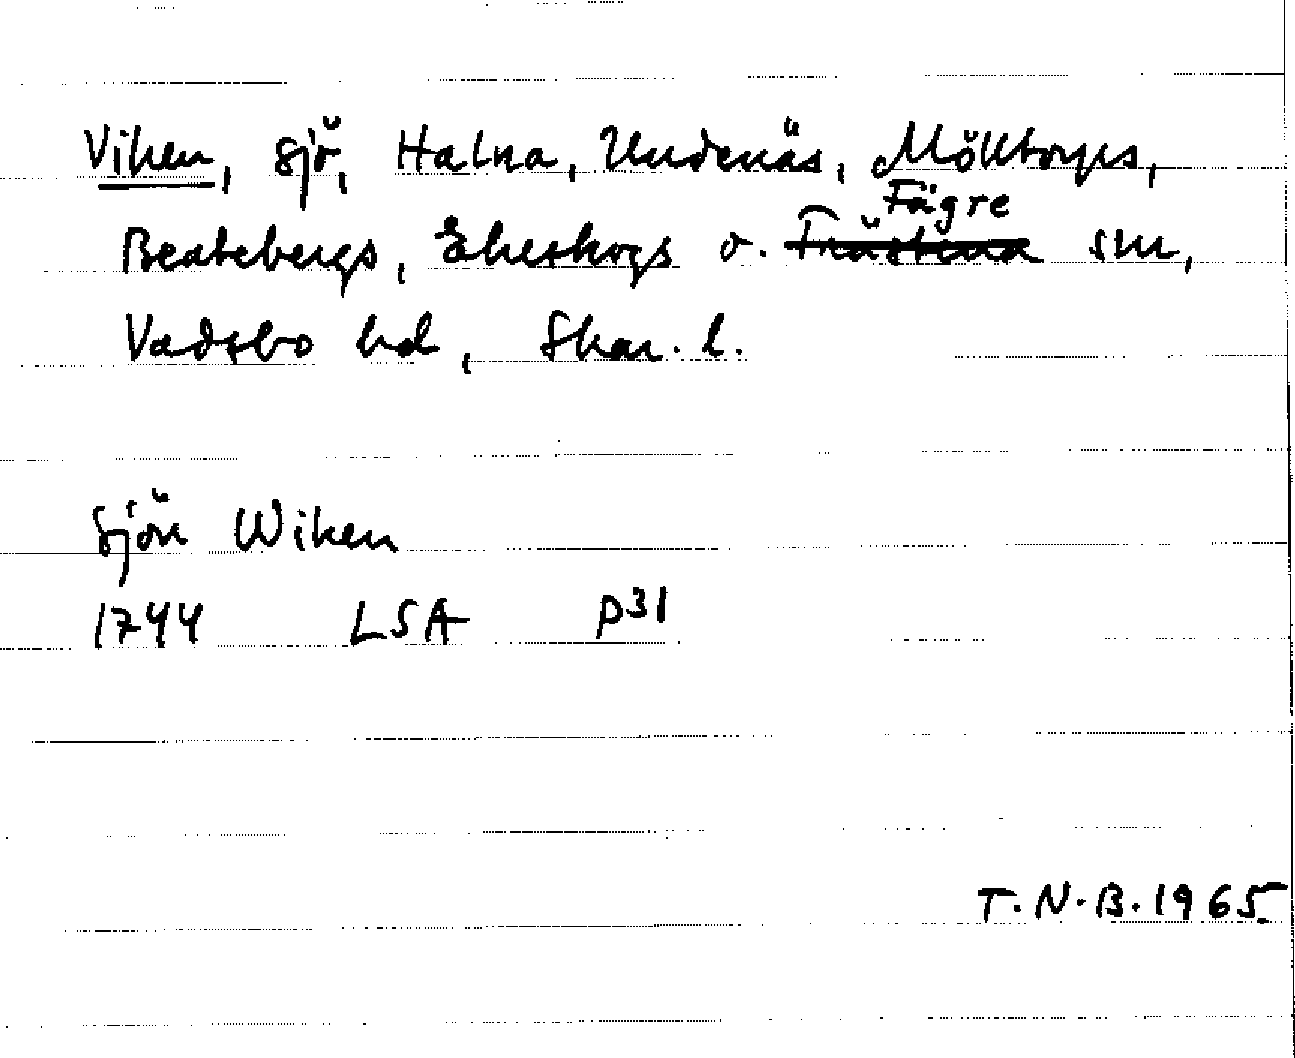 Viken, sjö, Halna, Undenäs, Mölltorps,
Fägre
Beatebergs, Ekeskogs o. snr,
Vadsbo hd, Skar. l.
sjön Wiken
1744 LSA P31
T.N.B. 1965